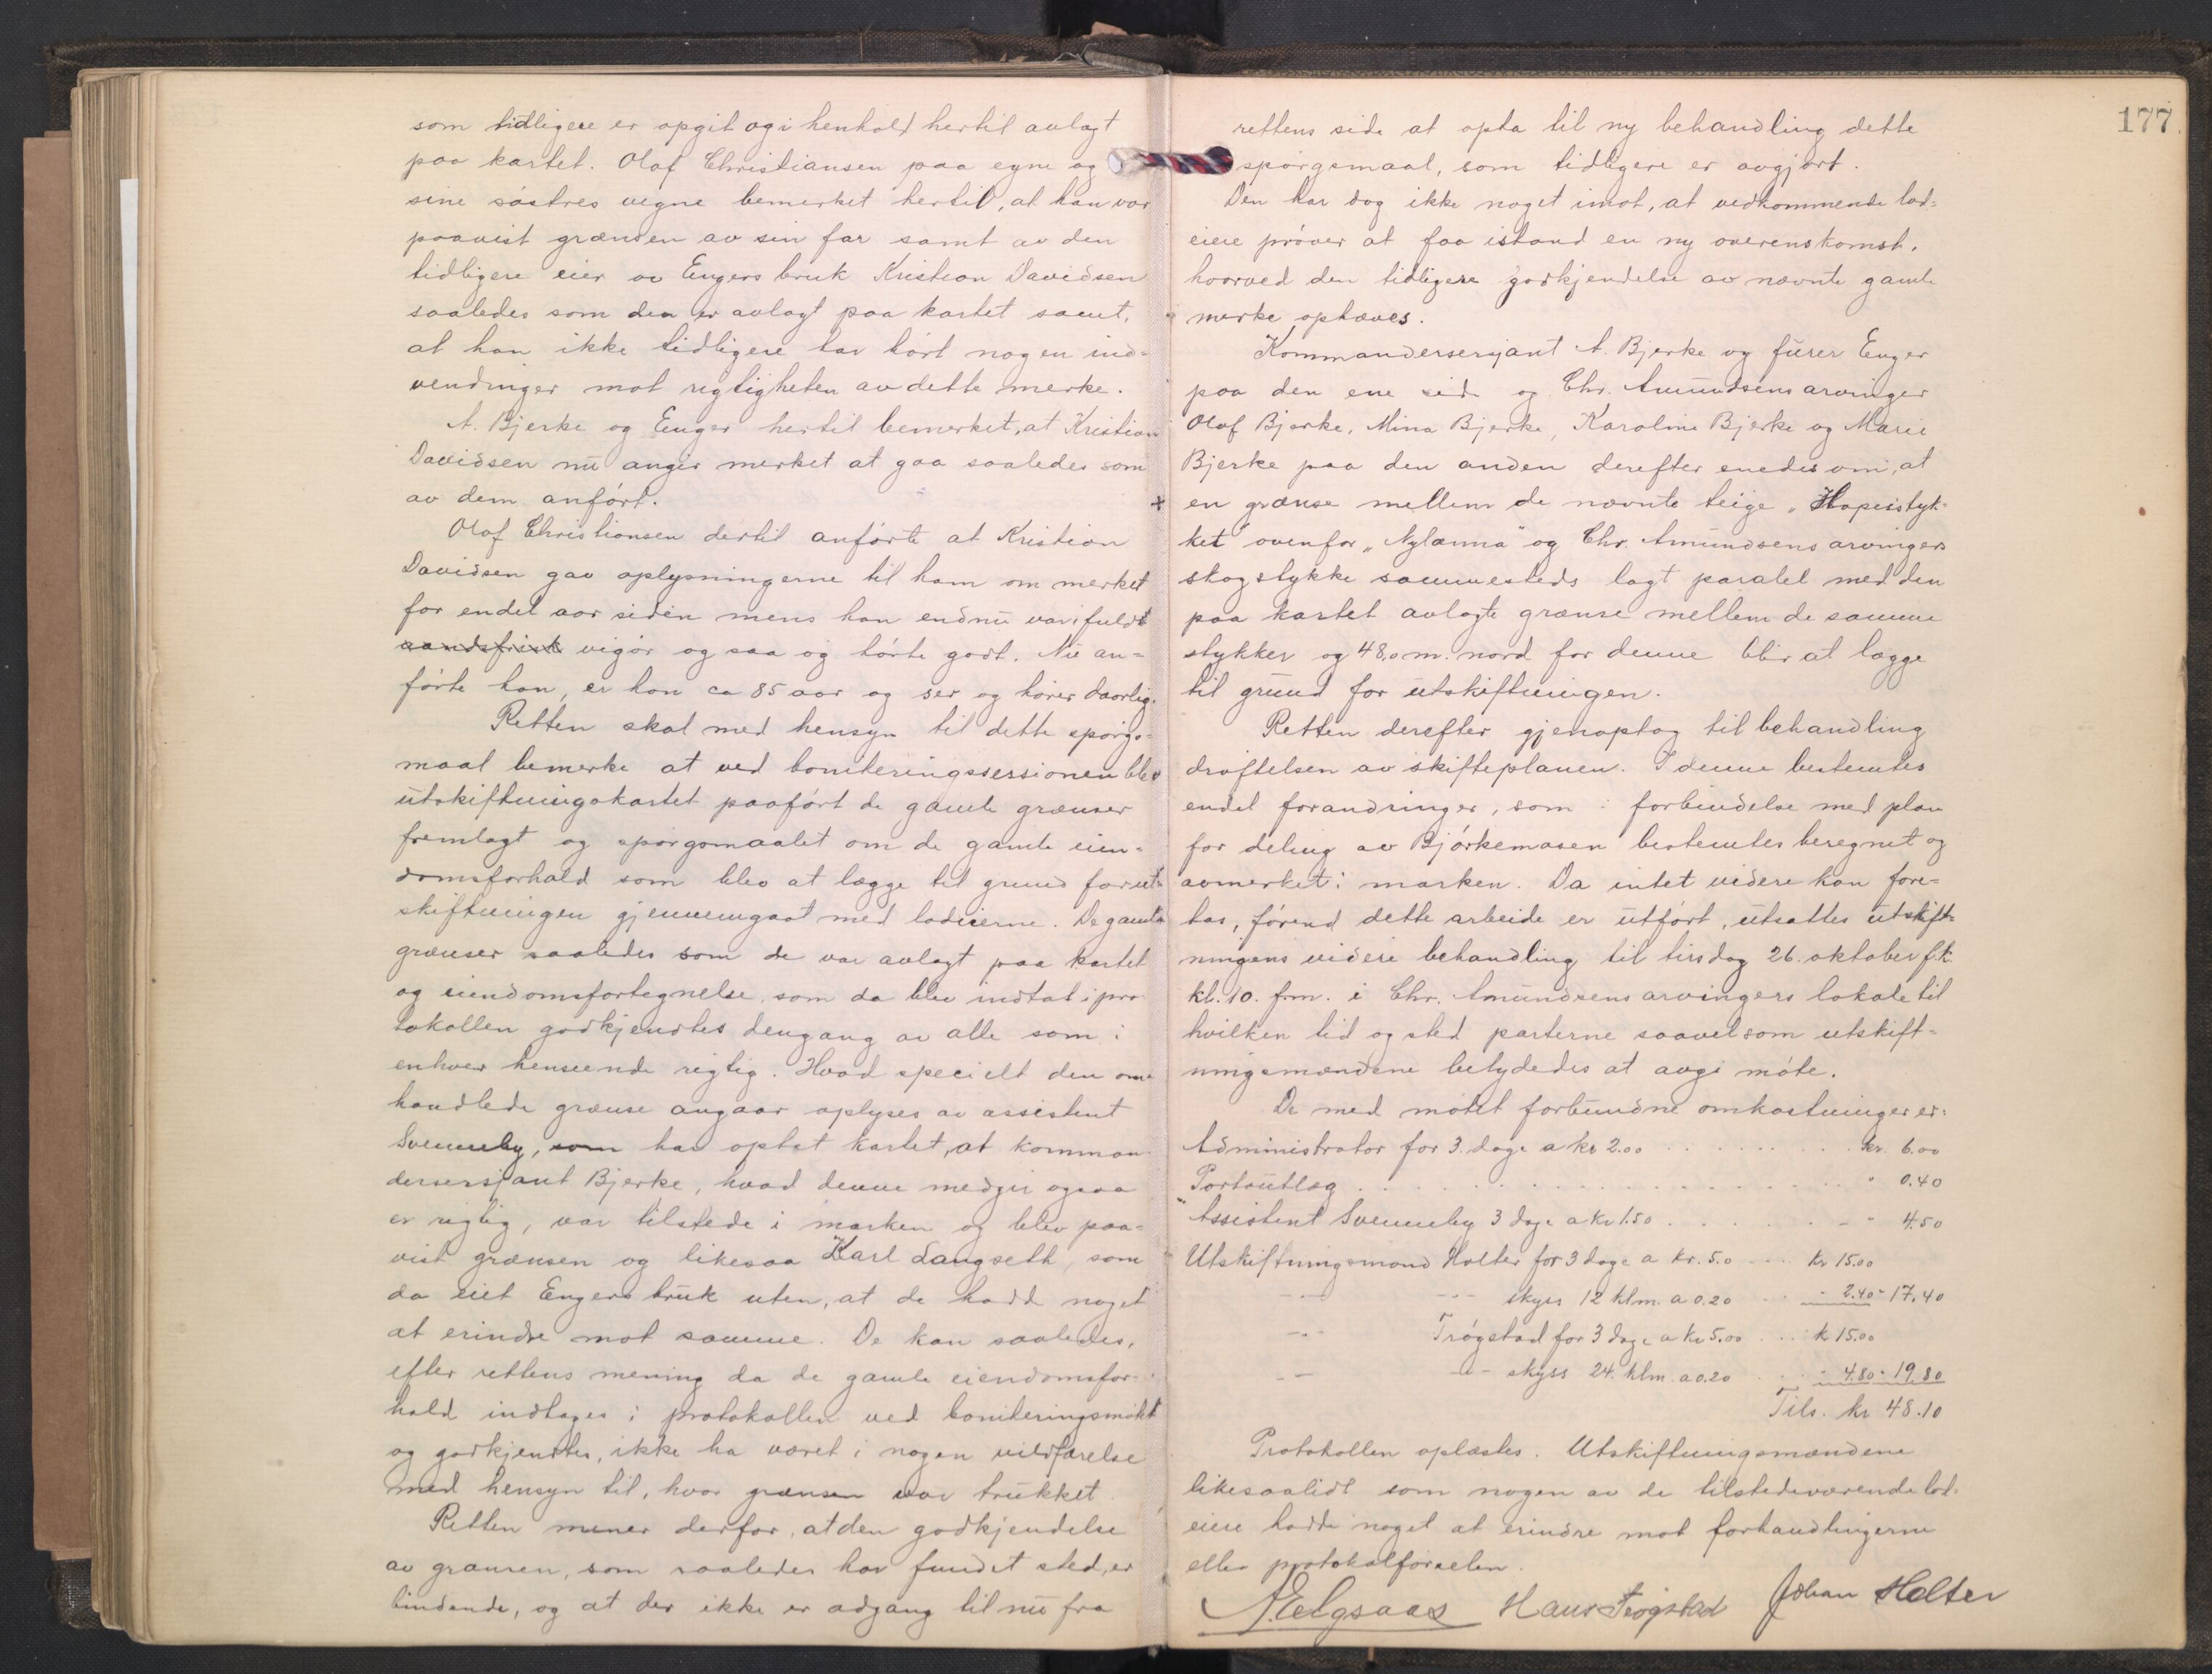 som tidligere er opgit og i henhold hertil avlagt
paa kartet. Olaf Christiansen paa egne og
sine søstres vegne bemerket hertil, at han var
paavist grænsen av sin far samt av den
tidligere eier av Engers bruk Kristian Davidsen
saaledes som den er avlagt paa kartet samt,
at han ikke tidligere har hørt nogen ind-
vendinger mot rigtigheten av dette merke.
A. Bjerke og Enger hertil bemerket, at Kristian
Davidsen nu angir merket at gaa saaledes som
av dem anført.
Olaf Christiansen dertil anførte at Kristian
Davidsen gav oplysningerne til ham om merket
for endel aar siden mens han endnu var i fuld
aandsfrisk vigør og saa og hørte godt. Nu an-
førte han, er han ca 85 aar og ser og hører daarlig.
Retten skal med hensyn til dette spørgs-
maal bemerke at ved boniteringssessionen blev
utskiftningskartet paaført de gamle grænser
fremlagt og spørgsmaalet om de gamle eien-
domsforhold som blev at lægge til grund for ut-
skiftningen gjennemgaat med lodeierne. De gamle
grænser saaledes som de var avlagt paa kartet
og eiendomsfortegnelse, som da blev indtat i pro-
tokollen godkjendtes dengang av alle som i
enhver henseende rigtig. Hvad specielt den om-
handlede grænse angaar oplyses av assistent
Svenneby, som har optat kartet, at komman-
dersersjant Bjerke, hvad denne medgir ogsaa
er rigtig, var tilstede i marken og blev paa-
vist grænsen og likesaa Karl Langseth, som
da eiet Engers bruk uten, at de hadde noget
at erindre mot samme. De kan saaledes,
efter rettens mening da de gamle eiendomsfor-
hold indtages i protokollen ved boniteringsmøtet
og godkjendtes, ikke ha været i nogen vildfarelse
med hensyn til, hvor grænsen var trukket.
Retten mener derfor, at den godkjendelse
av grænsen, som saaledes har fundet sted, er
bindende, og at der ikke er adgang til nu fra
177.
rettens side at opta til ny behandling dette
spørgsmaal, som tidligere er avgjort.
Den har dog ikke noget imot, at vedkommende lod-
eiere prøver at faa istand en ny overenskomst,
hvorved den tidligere godkjendelse av nævnte gamle
merke ophæves.
Kommandersersjant A. Bjerke og furer Enger
paa den ene side og Chr. Amundsens arvinger
Olaf Bjerke, Mina Bjerke, Karoline Bjerke og Marie
Bjerke paa den anden derefter enedes om, at
+ en grænse mellem de nævnte teige "Hapisstyk-
ket" ovenfor "Nylænna" og Chr. Amundsens arvingers
skogstykke sammesteds lagt paralel med den
paa kartet avlagte grænse mellem de samme
stykker og 48,0 m. nord for denne blir at lægge
til grund for utskiftningen.
Retten derefter gjenoptog til behandling
drøftelsen av skifteplanen. I denne bestemtes
endel forandringer, som i forbindelse med plan
for deling av Bjørkemosen bestemtes beregnet og
avmerket i marken. Da intet videre kan fore-
tas, førend dette arbeide er utført, utsattes utskift-
ningens videre behandling til tirsdag 26. oktober f.k.
kl. 10. fm. i Chr. Amundsens arvingers lokale til
hvilken tid og sted parterne saavelsom utskift-
ningsmændene betydedes at avgi møte.
De med møtet forbundne omkostninger er:
Administrator for 3 dage a kr 2.00 . . . . . . kr. 6.00
Portoutlæg . . . . . . . . . . . " 0.40
Assistent Svenneby 3 dage a kr 1.50 . . . . . - " 4.50
Utskiftningsmand Holter for 3 dage a kr. 5.0 . . . . kr 15.00
-"- -"- skyss 12 klm. a 0.20 . . " 2.40 - 17.40
-"- Trøgstad for 3 dage a kr 5.00 . . . k 15.00
-"- -"- skyss 24 klm. a 0.20 . . . - 4.80 - 19.80
Tils. kr 48.10
Protokollen oplæstes. Utskiftningsmændene
likesaalidt som nogen av de tilstedeværende lod-
eiere hadde noget at erindre mot forhandlingerne
eller protokolførselen.
A. Elgsaas Hans Trøgstad Johan Holter